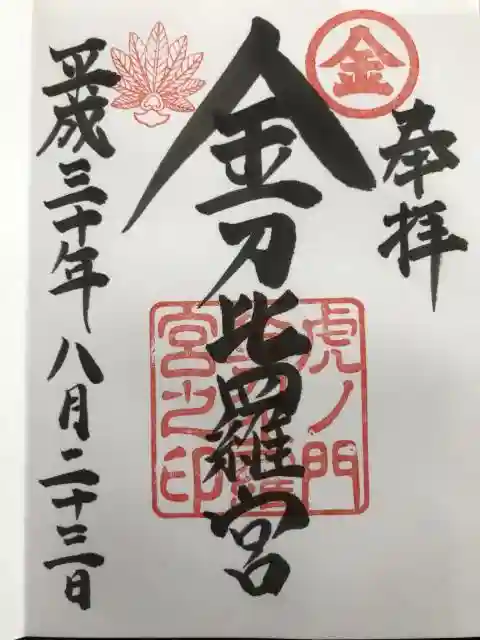 金
奉拝
金刀比羅宮
虎ノ門
宮之印
平成三十年八月二十三日